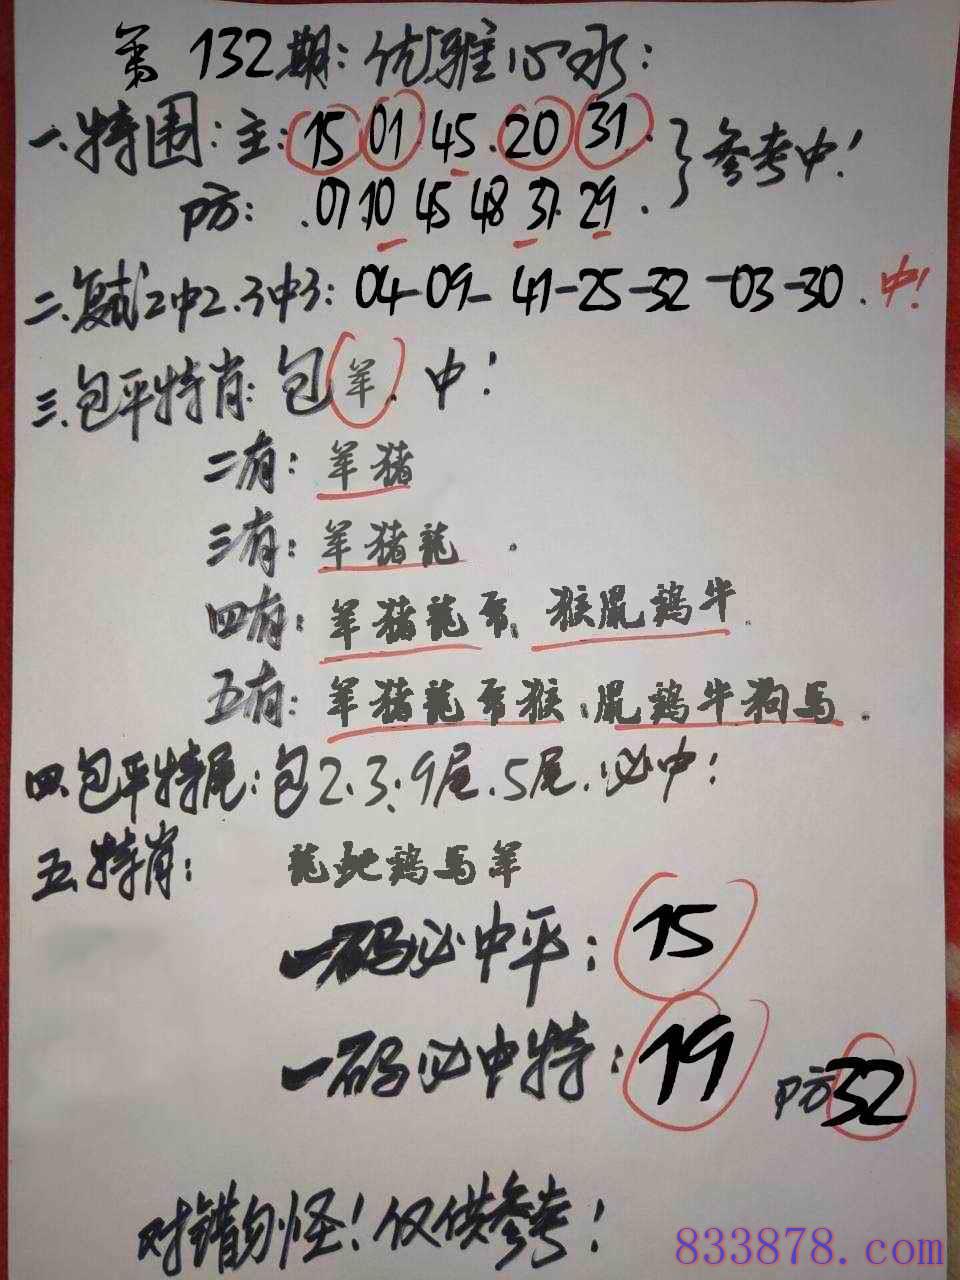 第132期：优雅心水：
一.特围：主：15 01 45.20 31.
防：.07.10 45 48 37.29.
参考中！
二.复式2中2.3中3：04-09-41-25-32-03-30.中！
三.包平特肖：包羊.中！
二有：羊猪
三有：羊猪龍.
四有：羊猪龍 猴鼠鷄牛.
五有：羊猪龍 猴.鼠鷄牛狗马.
四.包平特尾：包2.3.9尾.5尾.必中！
五.特肖：龍蛇鷄马羊
一码必中平：15
一码必中特：19 防32
对错勿怪！仅供参考！
833878.com